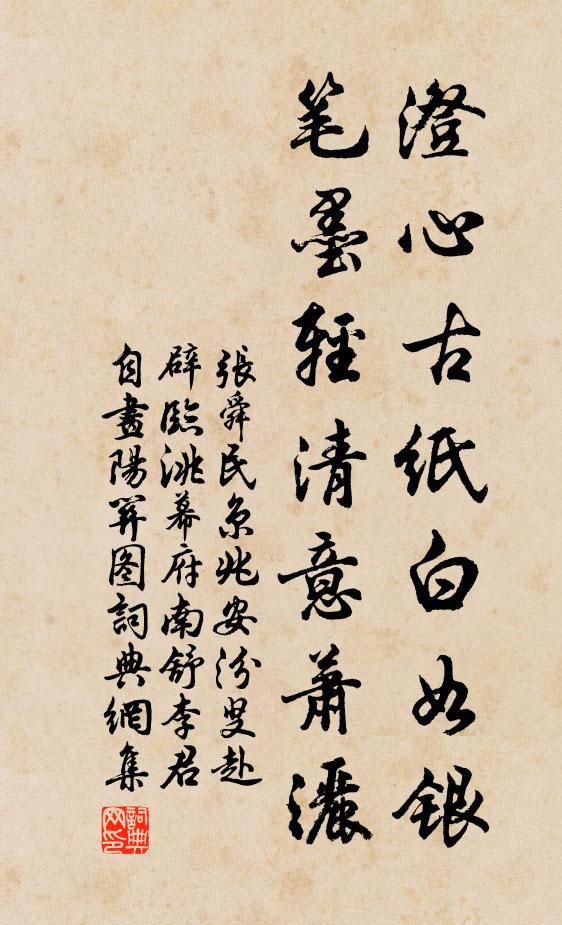 澄心古紙白如銀
笔墨輕清意蕭灑
張舜民京兆安汾叟赴
辟臨洮幕府南舒李君
自畫陽關圖詞典網集
詞典网印